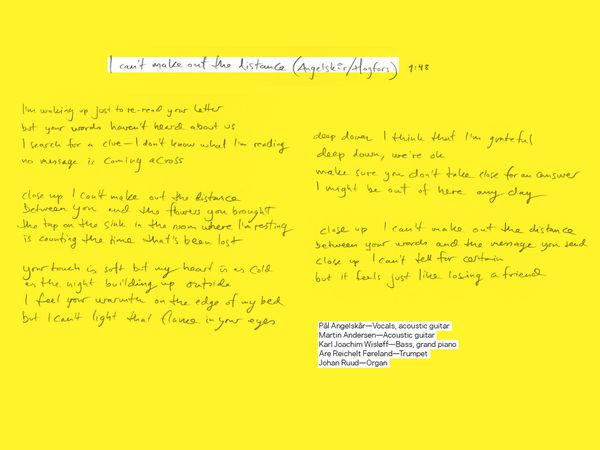 I can't make out the distance (Angelskår/Hagfors) 1:48
I'm waking up just to re-read your letter
but your words haven't heard about us
I search for a clue—I don't know what I'm reading
no message is coming across
close up I can't make out the distance
between you and the flowers you brought
the tap on the sink in the room where I'm resting
is counting the time that's been lost
your touch is soft but my heart is as cold
as the night building up outside
I feel your warmth on the edge of my bed
but I can't light that flame in your eyes
deep down I think that I'm grateful
deep down, we're ok
make sure you don't take close for an answer
I might be out of here any day
close up I can't make out the distance
between your words and the message you send
close up I can't tell for certain
but it feels just like losing a friend
Pål Angelskår—Vocals, acoustic guitar
Martin Andersen—Acoustic guitar
Karl Joachim Wisløff—Bass, grand piano
Are Reichelt Føreland—Trumpet
Johan Ruud—Organ